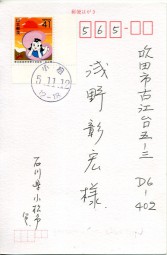 郵便はがき
565-
吹田市古江台五-三
D6-402
浅野彰宏様
石川県小松市
41
小松
5.11.12
12-18